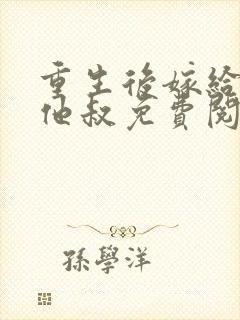 重生後嫁給
他叔免費閱
孫學洋